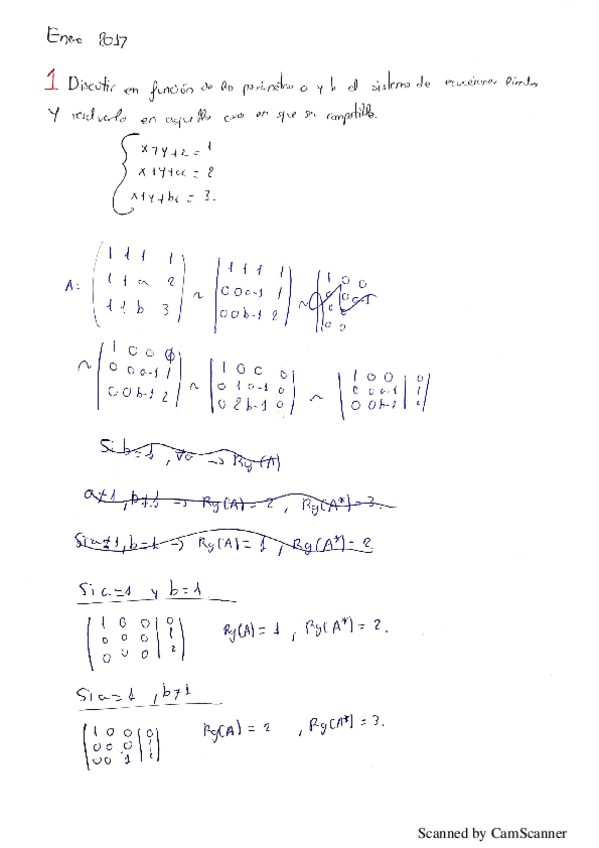 Enero 2017
1 Discutir en función de los parámetros a y b el sistema de ecuaciones lineales
y resolverlo en aquellos casos en que sea compatible.
x+y+z = 1
x+y+az = 2
x+y+bz = 3.
1 1 1 1
A: 1 1 a 2
1 1 b 3
~ 1 1 1 1
0 0 a-1 1
0 0 b-1 2
~ 1 0 0 0
0 0 a-1 1
0 0 b-1 2
~ 1 0 0 0
0 1 a-1 0
0 2 b-1 0
~ 1 0 0 | 0
0 0 a-1 | 1
0 0 b-1 | 2
Si b=1, ∀a → Rg(A)
a≠1, b≠1 → Rg(A) = 2, Rg(A*) = 3.
Si a≠1, b=1 → Rg(A) = 1, Rg(A*) = 2
Si a=1 y b=1
1 0 0 | 0
0 0 0 | 1
0 0 0 | 2
Rg(A) = 1, Rg(A*) = 2.
Si a=1, b≠1
1 0 0 | 0
0 0 0 | 1
0 0 1 | 2
Rg(A) = 2, Rg(A*) = 3.
Scanned by CamScanner